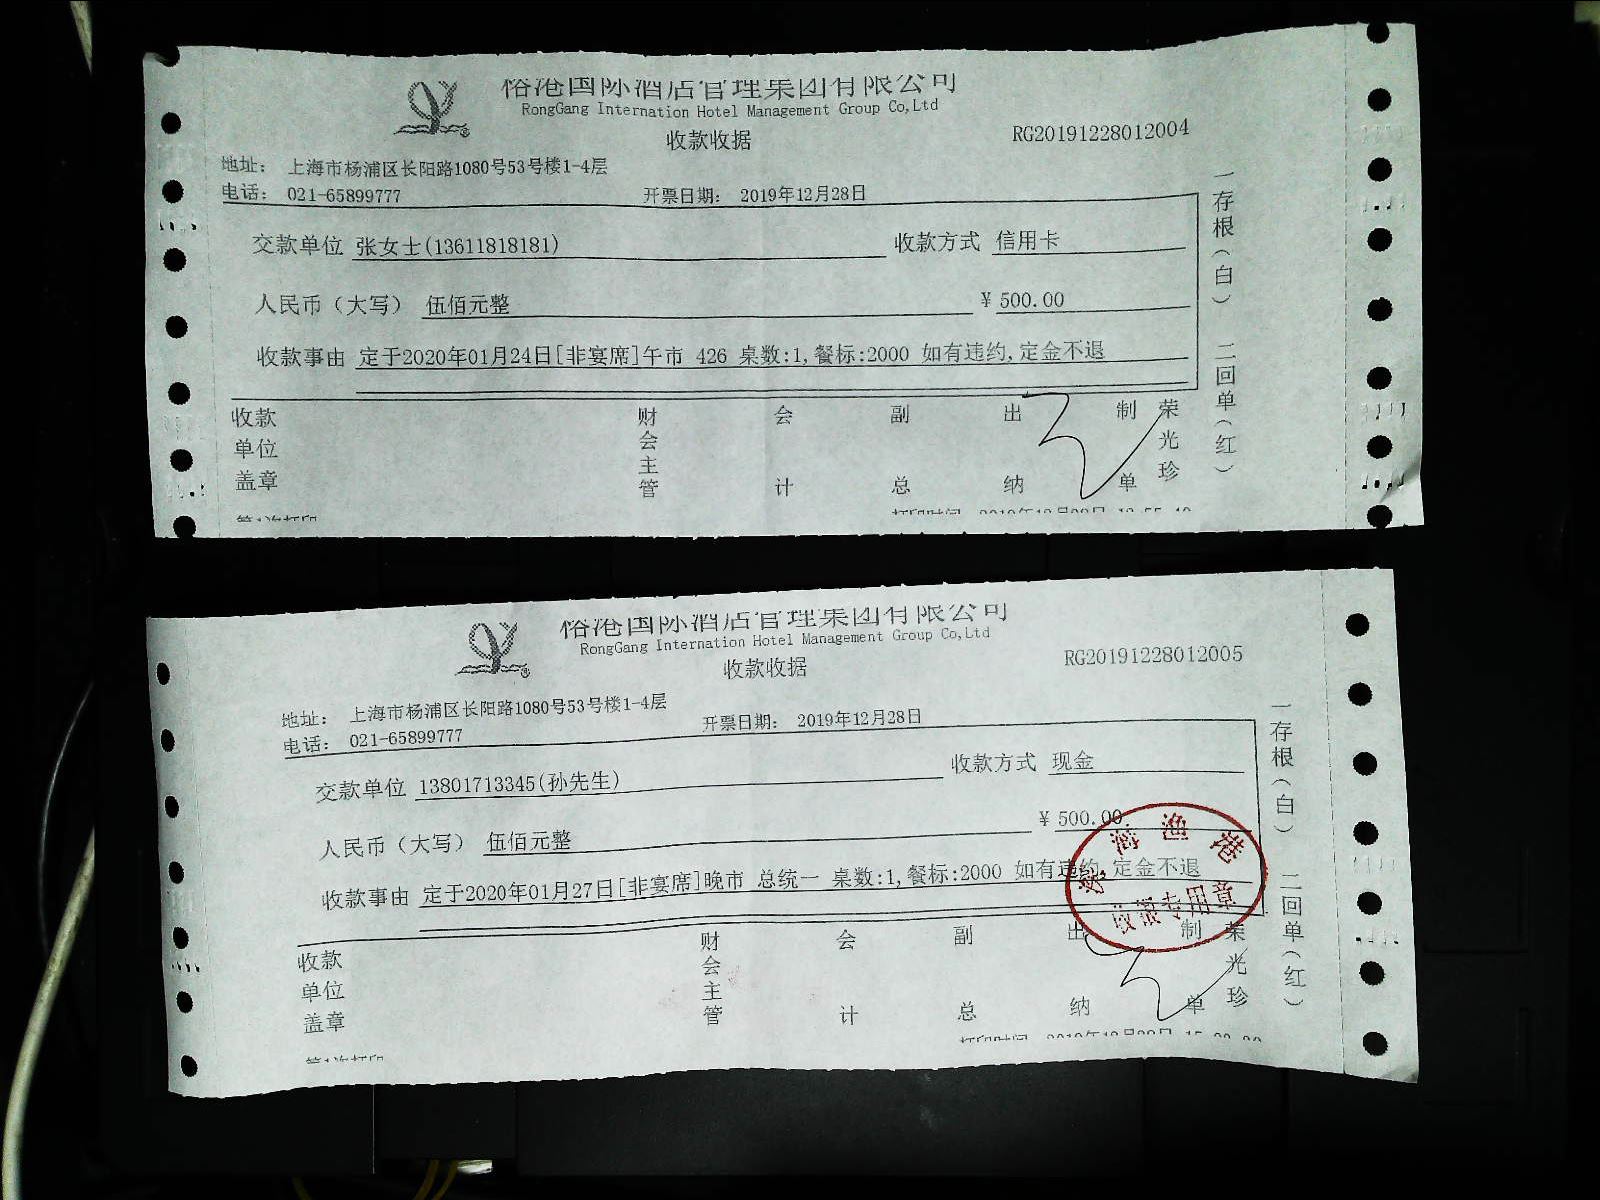 榕港国际酒店管理集团有限公司
RongGang Internation Hotel Management Group Co,Ltd
收款收据
RG20191228012004
地址： 上海市杨浦区长阳路1080号53号楼1-4层
电话： 021-65899777 开票日期： 2019年12月28日
交款单位 张女士(13611818181) 收款方式 信用卡
人民币（大写） 伍佰元整 ¥ 500.00
收款事由 定于2020年01月24日[非宴席]午市 426 桌数:1,餐标:2000 如有违约,定金不退
收款单位盖章 财会主管 会计 副总 出纳 制单 荣光珍
第1次打印 打印时间
一存根（白） 二回单（红）
榕港国际酒店管理集团有限公司
RongGang Internation Hotel Management Group Co,Ltd
收款收据
RG20191228012005
地址： 上海市杨浦区长阳路1080号53号楼1-4层
电话： 021-65899777 开票日期： 2019年12月28日
交款单位 13801713345(孙先生) 收款方式 现金
人民币（大写） 伍佰元整 ¥ 500.00
收款事由 定于2020年01月27日[非宴席]晚市 总统一 桌数:1,餐标:2000 如有违约,定金不退
收款单位盖章 财会主管 会计 副总 出纳 制单 荣光珍
第1次打印 打印时间
一存根（白） 二回单（红）
海渔港
收银专用章